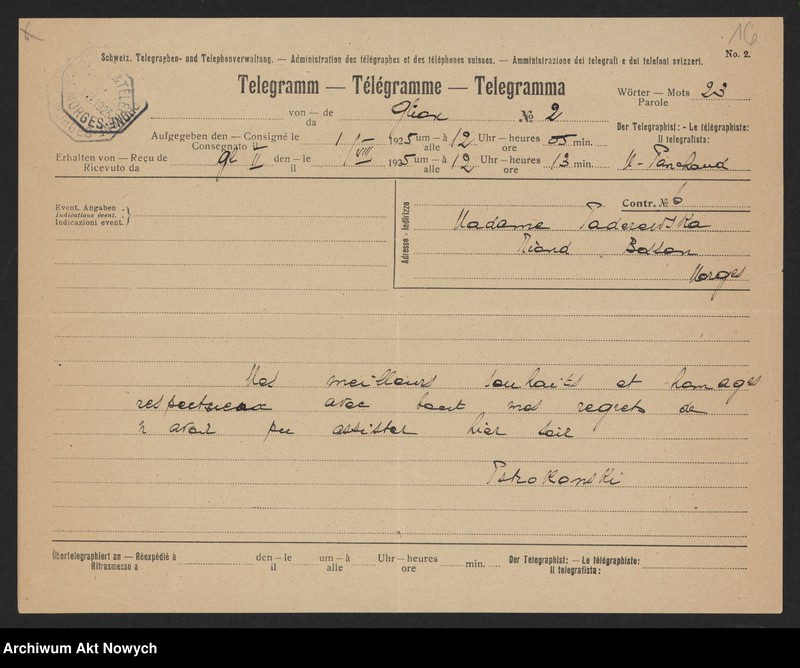 16
No. 2.
Schweiz. Telegraphen- und Telephonverwaltung. — Administration des télégraphes et des téléphones suisses. — Amministrazione dei telegrafi e dei telefoni svizzeri.
Telegramm — Télégramme — Telegramma
Wörter — Mots 23
Parole
von — de
da
№ 2
Der Telegraphist: - Le télégraphiste:
Il telegrafista:
Aufgegeben den — Consigné le 1 VIII 1925 um — à 12 Uhr — heures 05 min.
Consegnato il alle ore
Erhalten von — Reçu de den — le 1925 um — à 12 Uhr — heures 13 min.
Ricevuto da il alle ore
MORGES
Event. Angaben
Indications évent.
Indicazioni event.
Adresse - Indirizzo
Contr. № 6
Madame Paderewska
Riond Bosson
Morges
Mes meilleurs souhaits et homages
respectueux avec tout mes regrets de
n avoir pu assister hier soir
Pstrokonski
Übertelegraphiert an — Réexpédié à den — le um — à Uhr — heures min.
Ritrasmesso a il alle ore
Der Telegraphist: — Le télégraphiste:
Il telegrafista:
Archiwum Akt Nowych